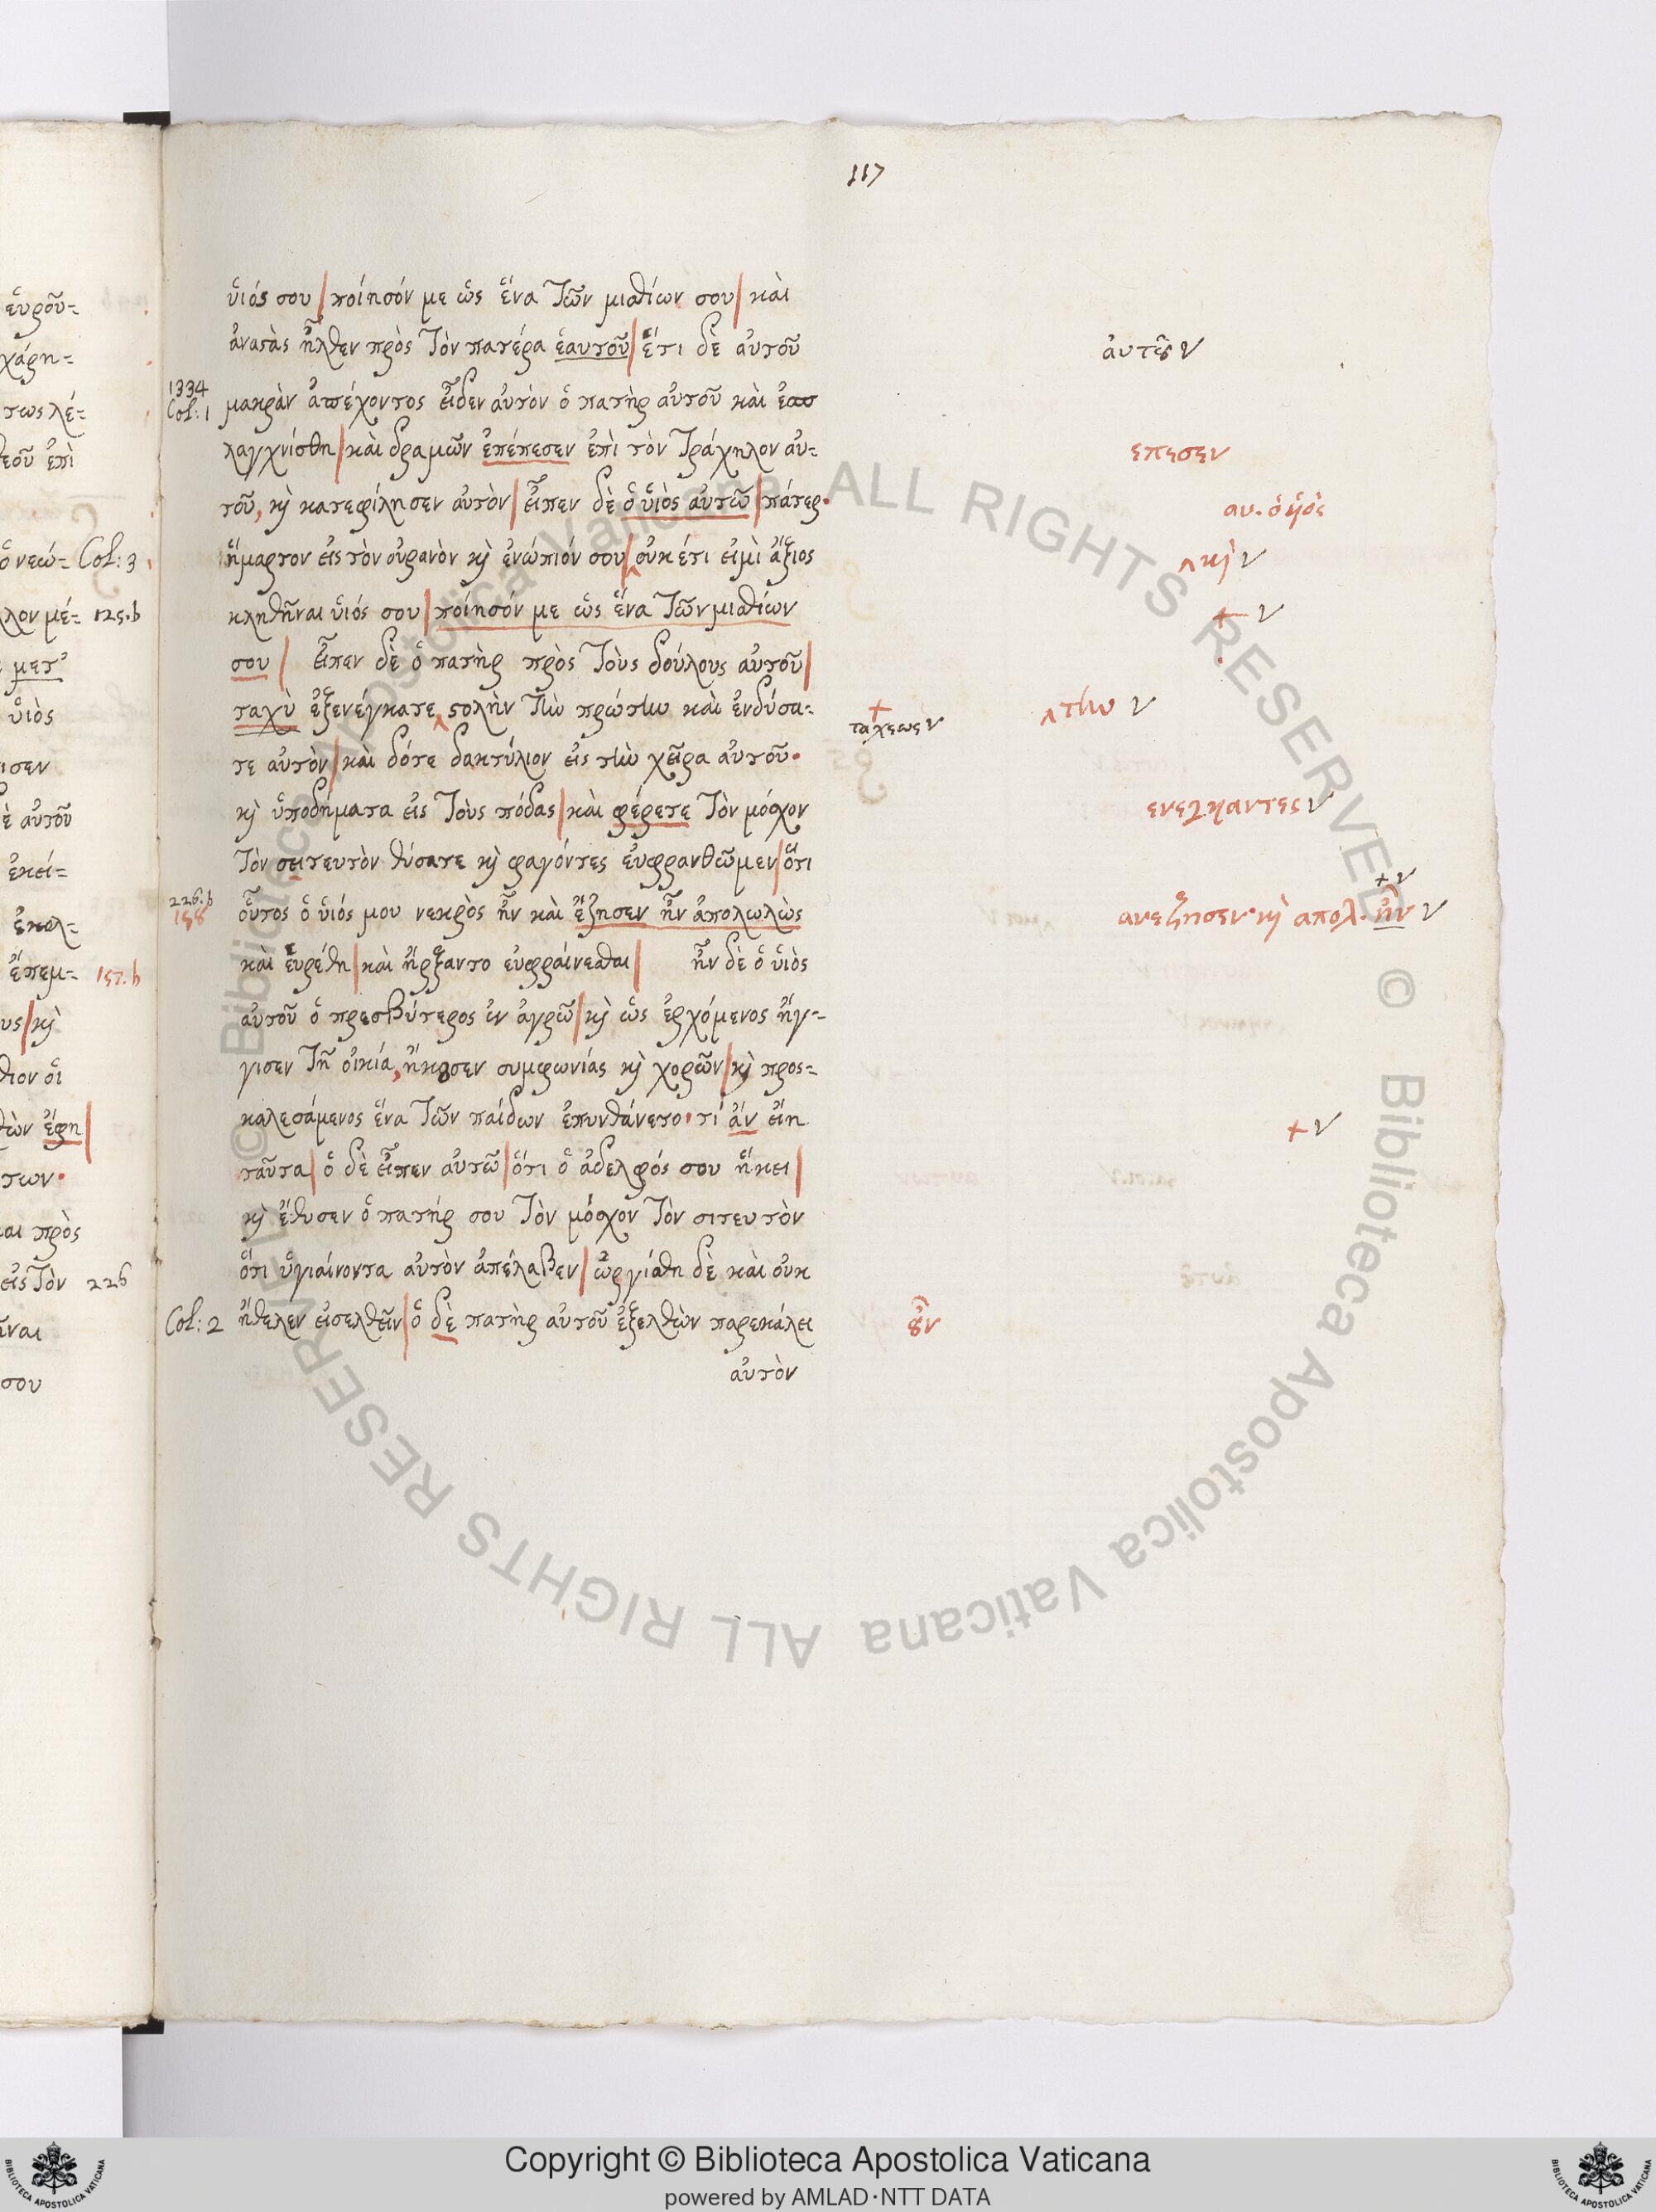 117
ὑιός σου | ποίησόν με ὡς ἕνα τῶν μισθίων σου | καὶ
ἀναϛὰς ἦλθεν πρὸς τὸν πατέρα ἑαυτοῦ | ἔτι δὲ αὐτοῦ
αὐτȣ͂ ν
1334
Col: 1
μακρὰν ἀπέχοντος εἶδεν αὐτὸν ὁ πατὴρ αὐτοῦ καὶ ἐσπ
λαγχνίσθη | καὶ δραμῶν ἐπέπεσεν ἐπὶ τὸν τράχηλον αὐ=
επεσεν
τοῦ, κὶ κατεφίλησεν αὐτὸν | εἶπεν δὲ ὁ ὑιὸς αὐτῶ | πάτερ·
αυ. ὁ ὑιὸς
ἥμαρτον εἰς τὸν οὐρανὸν κὶ ἐνώπιόν σου | ‸ οὐκέτι εἰμὶ ἄξιος
‸ κὶ ν
κληθῆναι ὑιός σου | ποίησόν με ὡς ἕνα τῶν μισθίων
+ ν
σου | εἶπεν δὲ ὁ πατὴρ πρὸς τοὺς δούλους αὐτοῦ |
ταχὺ ἐξενέγκατε ‸ ϛολὴν τὴν πρώτην καὶ ἐνδύσα=
+
ταχεως ν
‸ την ν
τε αὐτὸν | καὶ δότε δακτύλιον εἰς τὴν χεῖρα αὐτοῦ·
κὶ ὑποδήματα εἰς τοὺς πόδας | καὶ φέρετε τὸν μόσχον
ενεγκαντες ν
τὸν σειτευτὸν θύσατε κὶ φαγόντες εὐφρανθῶμεν | ὅτι
226.b
158
οὗτος ὁ ὑιός μου νεκρὸς ἦν καὶ ἔζησεν ἦν ἀπολωλὼς
+ ν
ανεζησεν· κὶ απολ. ἦν ν
καὶ εὑρέθη | καὶ ἤρξαντο εὐφραίνεσθαι | ἦν δὲ ὁ ὑιὸς
αὐτοῦ ὁ πρεσβύτερος ἐν ἀγρῶ | κὶ ὡς ἐρχόμενος ἤγ=
γισεν τῆ οἰκία, ἤκȣσεν συμφωνίας κὶ χορῶν | κὶ προς=
καλεσάμενος ἕνα τῶν παίδων ἐπυνθάνετο· τί ἄν εἴη
+ ν
ταῦτα | ὁ δὲ εἶπεν αὐτῶ | ὅτι ὁ ἀδελφός σου ἥκει |
κὶ ἔθυσεν ὁ πατήρ σου τὸν μόσχον τὸν σιτευτὸν
ὅτι ὑγιαίνοντα αὐτὸν ἀπέλαβεν | ὠργίσθη δὲ καὶ οὐκ
Col: 2
ἤθελεν εἰσελθεῖν | ὁ δὲ πατὴρ αὐτοῦ ἐξελθὼν παρεκάλει
ȣ̓͂ν
αὐτὸν
εὑροῦ=
χάρη=
τως λέ=
εοῦ ἐπὶ
ὁ νεώ= Col: 3
λον μέ= 125.b
μετ'
ὑιὸς
ισεν
ὲ αὐτοῦ
ἐκεί=
ἐκολ=
ἔπεμ= 157.b
υς | κὶ
θιον οἱ
θὼν ἔφη |
των·
αι πρὸς
εἰς τὸν 226
ῆναι
σου
© Biblioteca Apostolica Vaticana ALL RIGHTS RESERVED
© Biblioteca Apostolica Vaticana ALL RIGHTS RESERVED
Copyright © Biblioteca Apostolica Vaticana
powered by AMLAD·NTT DATA
BIBLIOTECA APOSTOLICA VATICANA
BIBLIOTECA APOSTOLICA VATICANA